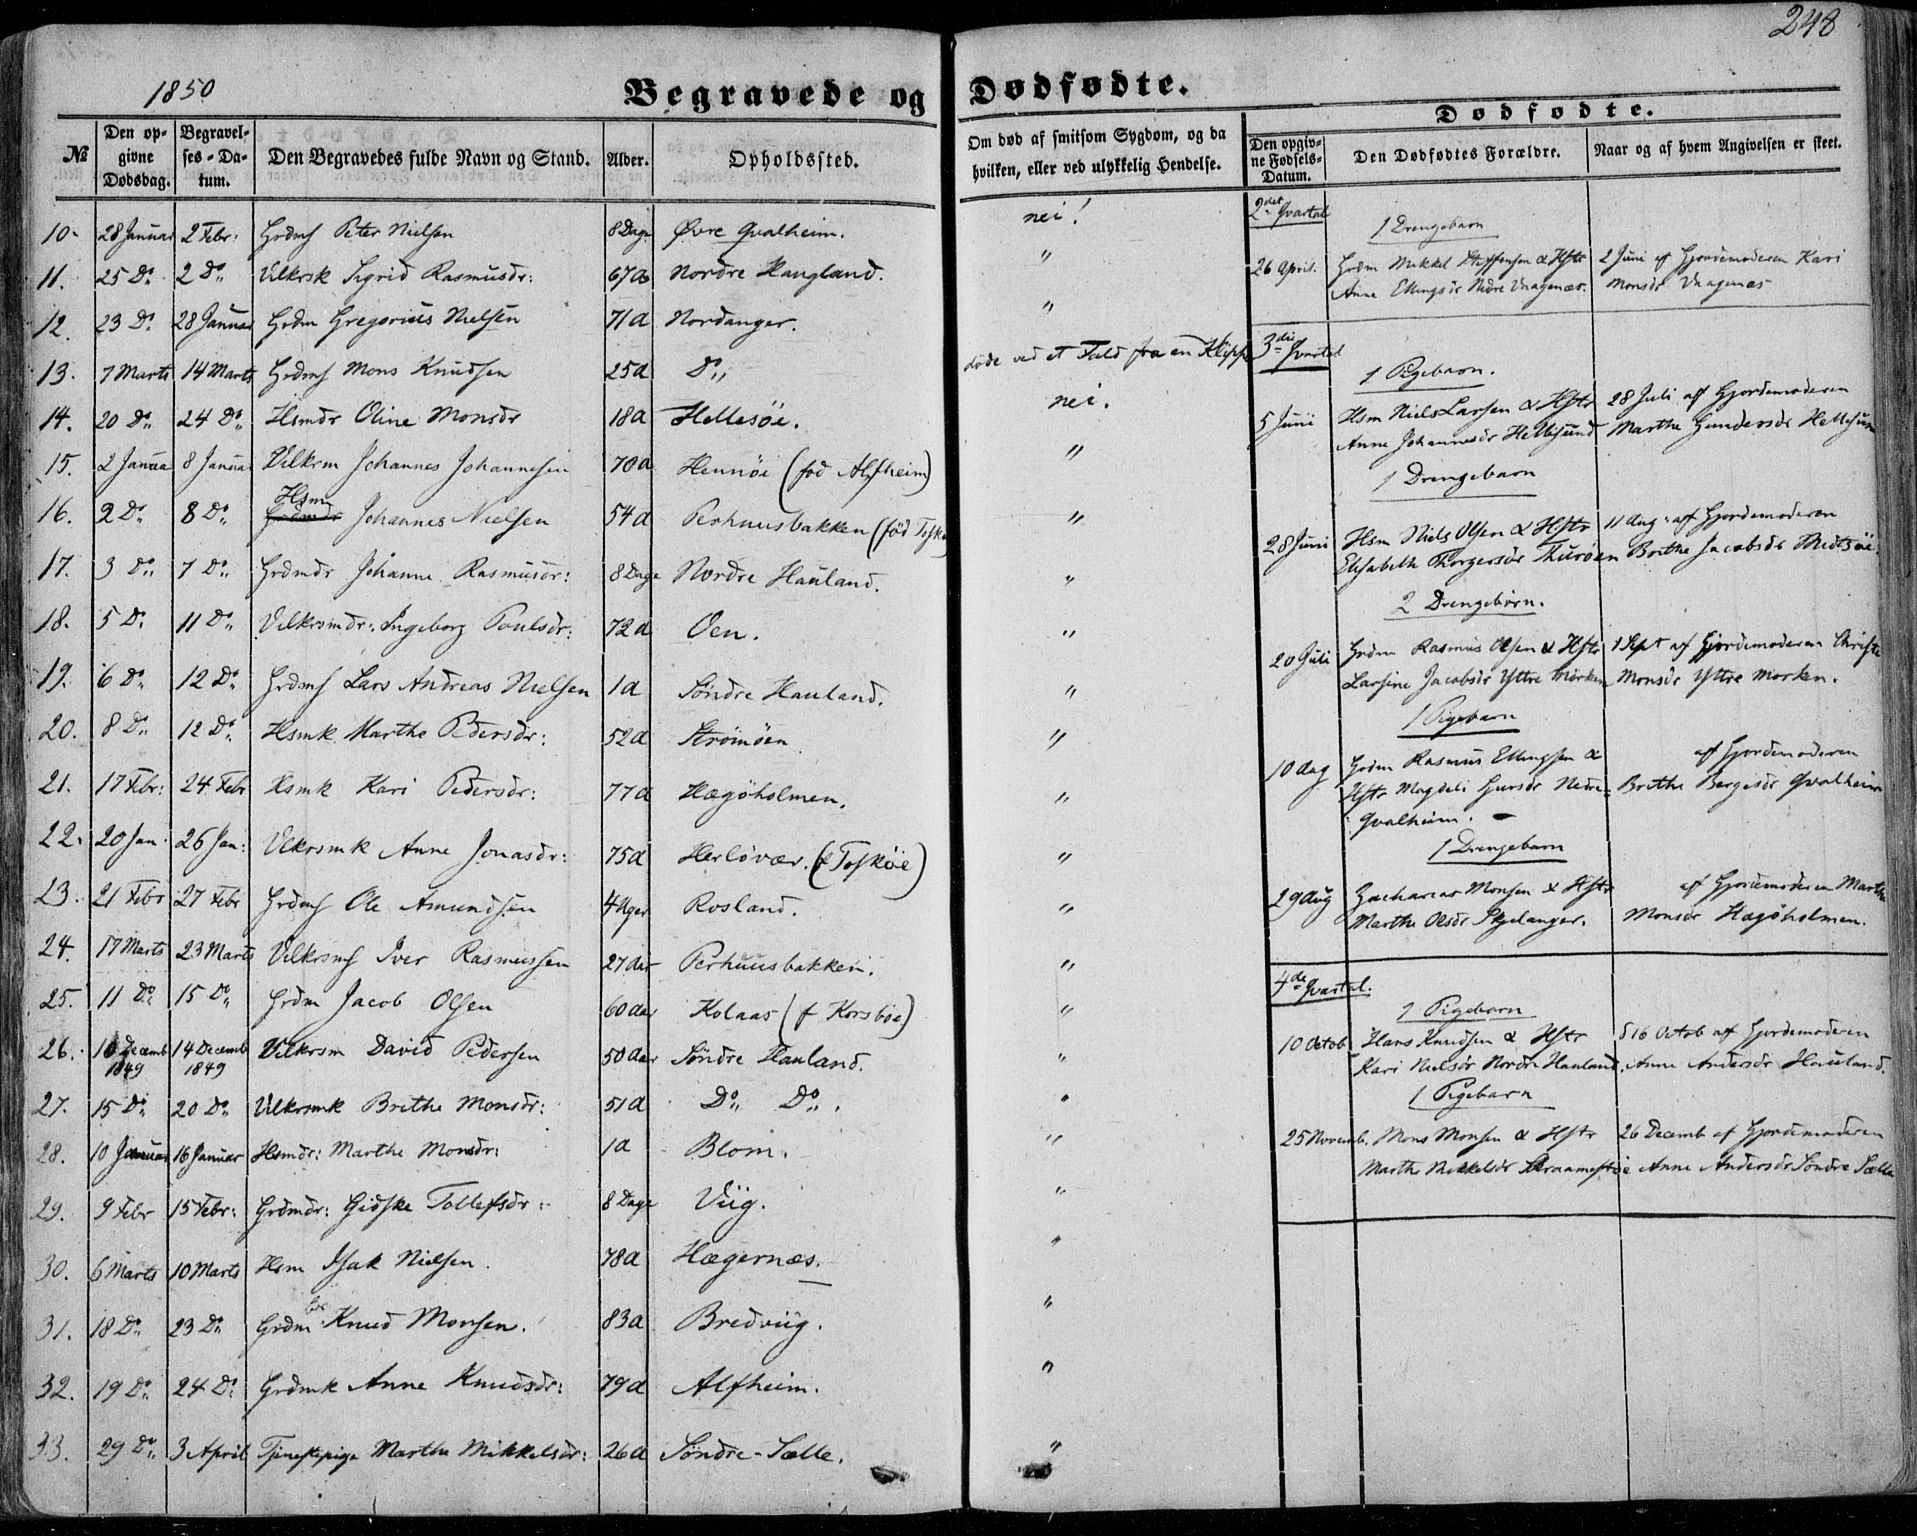 248
1850
Begravede og Dødfødte.
№
Den opgivne Dødsdag.
Begravelses-Datum.
Den Begravedes fulde Navn og Stand.
Alder.
Opholdssted.
Om død af smitsom Sygdom, og da hvilken, eller ved ulykkelig Hendelse.
10. 28 Januar 2 Febr: Grdms Peter Nielsen 8 Dage Øvre Qvalheim. nei!
11. 25 Do 2 Do Vilkrsk Sigrid Rasmusdr: 67a Nordre Haugland. "
12. 23 Do 28 Januar Grdm Gregorius Nielsen 71a Nordanger. "
13. 7 Marts 14 Marts Grdms Mons Knudsen 25a Do døde ved et Fald fra en Klippe
14. 20 Do 24 Do Hsmdr Oline Monsdr 18a Hellesøe. nei.
15. 2 Januar 8 Januar Vilkrm Johannes Johannesen 70a Hennøe (fød Alfheim) "
16. 2 Do 8 Do Hsm Johannes Nielsen 54a Perhuusbakken (fød Toskøe "
17. 3 Do 7 Do Grdmdr Johanne Rasmusdr: 8 Dage Nordre Hauland. "
18. 5 Do 11 Do Vilkrsmdr: Ingeborg Poulsdr: 72a Oen. "
19. 6 Do 12 Do Grdms Lars Andreas Nielsen 1a Søndre Hauland. "
20. 8 Do 12 Do Hsmk Marthe Pedersdr: 52a Strømøen "
21. 17 Febr: 24 Febr Hsmk Kari Pedersdr: 77a Hægøholmen. "
22. 20 Jan. 26 Jan: Vlkrsmk Anne Jonasdr: 75a Herløvær. (f Toskøe) "
23. 21 Febr 27 Febr Grdms Ole Amundsen 4 Uger Rosland. "
24. 17 Marts 23 Marts Vilkrsms Iver Rasmussen 27 aar Perhuusbakken. "
25. 11 Do 15 Do Grdm Jacob Olsen 60 aar Kolaas (f Korsbøe) "
26. 10 Decemb 1849 14 Decemb 1849 Vilkrsm David Pedersen 50 aar Søndre Hauland. "
27. 15 Do 20 Do Vilkrsmk Brithe Monsdr: 51a Do Do. "
28. 10 Januar 16 Januar Hsmdr: Marthe Monsdr: 1a Blom. "
29. 9 Febr 15 Febr: Grdmdr: Gidske Tollefsdr: 8 Dage Viig. "
30. 6 Marts 10 Marts Hsm Isak Nielsen. 78a Hægernæs. "
31. 18 Do 23 Do Grdm Knud Monsen. 83a Bredviig. "
32. 19 Do 24 Do Grdmk Anne Knudsdr: 79a Alfheim. "
33. 29 Do 3 April Tjenestepige Marthe Mikkelsdr: 26a Søndre-Sælle. "
Dødfødte.
Den opgivne Fødsels-Datum.
Den Dødfødtes Forældre.
Naar og af hvem Angivelsen er skeet.
2det Qvartal
1 Drengebarn
26 April. Grdm Mikkel Steffensen & Hstr 2 Juni af Gjordemoderen Kari
Anne Ellingsdr Nedre Vaagenæs. Monsdr Vaagenæs
3die Qvartal
1 Pigebarn.
5 Juni Hsm Niels Larsen & Hstr 28 Juli af Gjordemoderen
Anne Johannesdr Hellesund Marthe Gundersdr Hellesund
1 Drengebarn
28 Juni Hsm Niels Olsen & Hstr 11 Aug: af Gjordemoderen
Elisabeth Thorgersdr Thurøen Brithe Jacobsdr Midtsøe.
2 Drengebørn.
20 Juli Grdm Rasmus Olsen & Hstr 1 Sept af Gjordemoderen Christe
Larsine Jacobsdr Yttre Morken Monsdr Yttre Morken.
1 Pigebarn
10 Aug Grdm Rasmus Ellingsen & af Gjordemoderen
Hstr Magdeli Giursdr Nedre- Brithe Bergesdr Qvalheim
Qvalheim.
1 Drengebarn
29 Aug Zacharias Monsen & Hstr af Gjordemoderen Marthe
Marthe Olsdr Skjelanger. Monsdr Hægøholmen.
4de Qvartal.
1 Pigebarn
10 Octob. Hans Knudsen & Hstr 16 Octob af Gjordemoderen
Kari Nielsdr Nordre Hauland. Anne Andersdr Hauland.
1 Pigebarn
25 Novemb. Mons Monsen & Hstr 26 Decemb af Gjordemoderen
Marthe Mikkelsdr Anne Andersdr Søndre Sælle